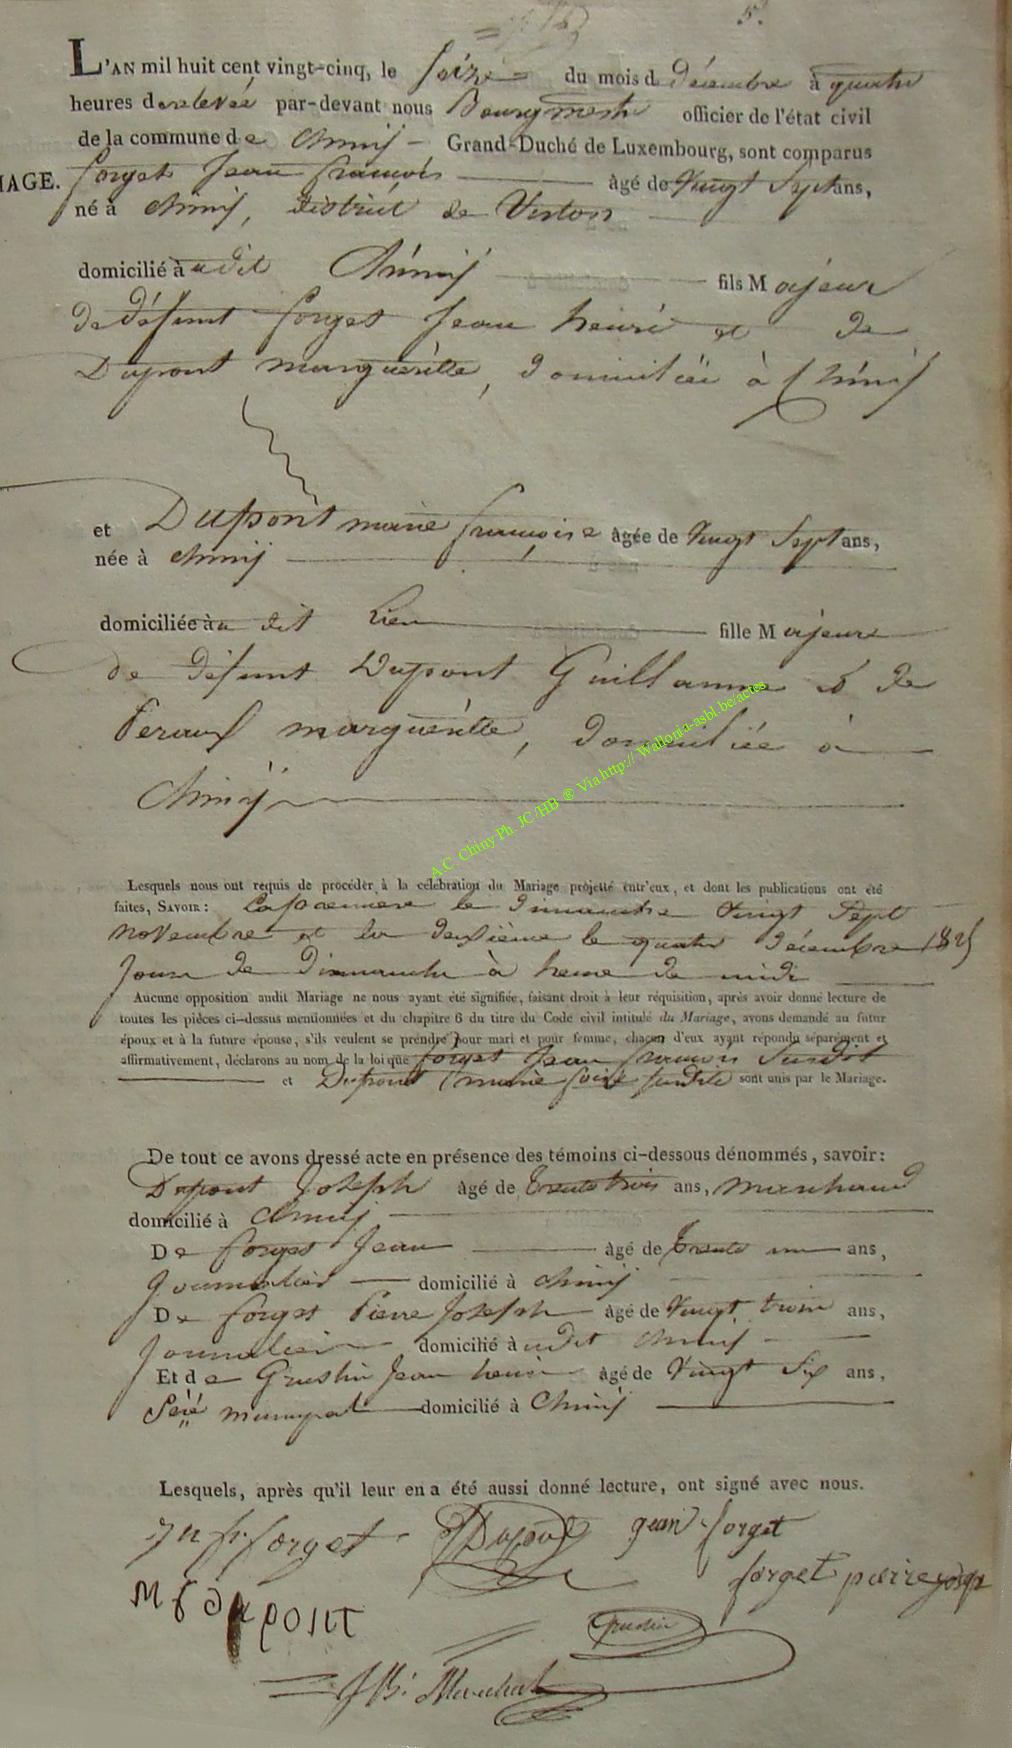 5.
L'AN mil huit cent vingt-cinq, le seize du mois de décembre à quatre
heures de relevée par-devant nous Bourgmestre officier de l'état civil
de la commune de Chinij Grand-Duché de Luxembourg, sont comparus
IAGE. forget Jean françois âgé de Vingt Sept ans,
né à chinij, district de Virton
domicilié à udit Chinij fils Majeur
de défunt forget Jean henri et de
Dupont margueritte, domiciliée à Chinij
et Dupont marie françoise âgée de Vingt Sept ans,
née à chinij
domiciliée à u dit Lieu fille Majeure
de défunt Dupont Guillaume & de
margueritte, domiciliée à
Chinij
Lesquels nous ont requis de procéder à la célébration du Mariage projetté entr'eux, et dont les publications ont été
faites, SAVOIR : La premiere le dimanche Vingt Sept
novembre et la deuxième le quatre décembre 1825
Jour de Dimanche à heure de midi
Aucune opposition audit Mariage ne nous ayant été signifiée, faisant droit à leur réquisition, après avoir donné lecture de
toutes les pièces ci-dessus mentionnées et du chapitre 6 du titre du Code civil intitulé du Mariage, avons demandé au futur
époux et à la future épouse, s'ils veulent se prendre pour mari et pour femme, chacun d'eux ayant répondu séparément et
affirmativement, déclarons au nom de la loi que forget Jean françois Susdit
et Dupont marie susdite sont unis par le Mariage.
De tout ce avons dressé acte en présence des témoins ci-dessous dénommés, savoir:
Dupont Joseph âgé de trente trois ans, marchand
domicilié à Chinij
De forget Jean âgé de trente un ans,
Journalier domicilié à chinij
De forget Pierre Joseph âgé de Vingt trois ans,
Journalier domicilié à udit Chinij
Et de Grustin Jean henri âgé de Vingt Six ans,
municipal domicilié à Chinij
Lesquels, après qu'il leur en a été aussi donné lecture, ont signé avec nous.
Jn fs forget Dupont jean forget
forget pierre
M f dupont
Grustin
Marechal
A.C. Chiny Ph. JC/HB ® Via http:// Wallonia-asbl.be/actes